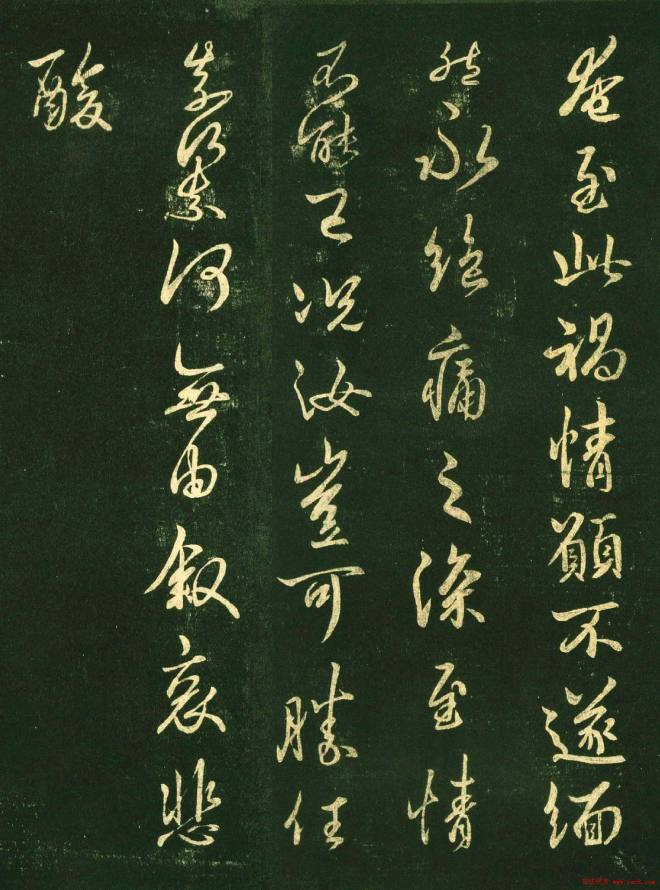 奄至此禍情願不遂緬
然永絶痛之深至情
不能已况汝豈可勝任
奈何奈何無由叙哀悲
酸